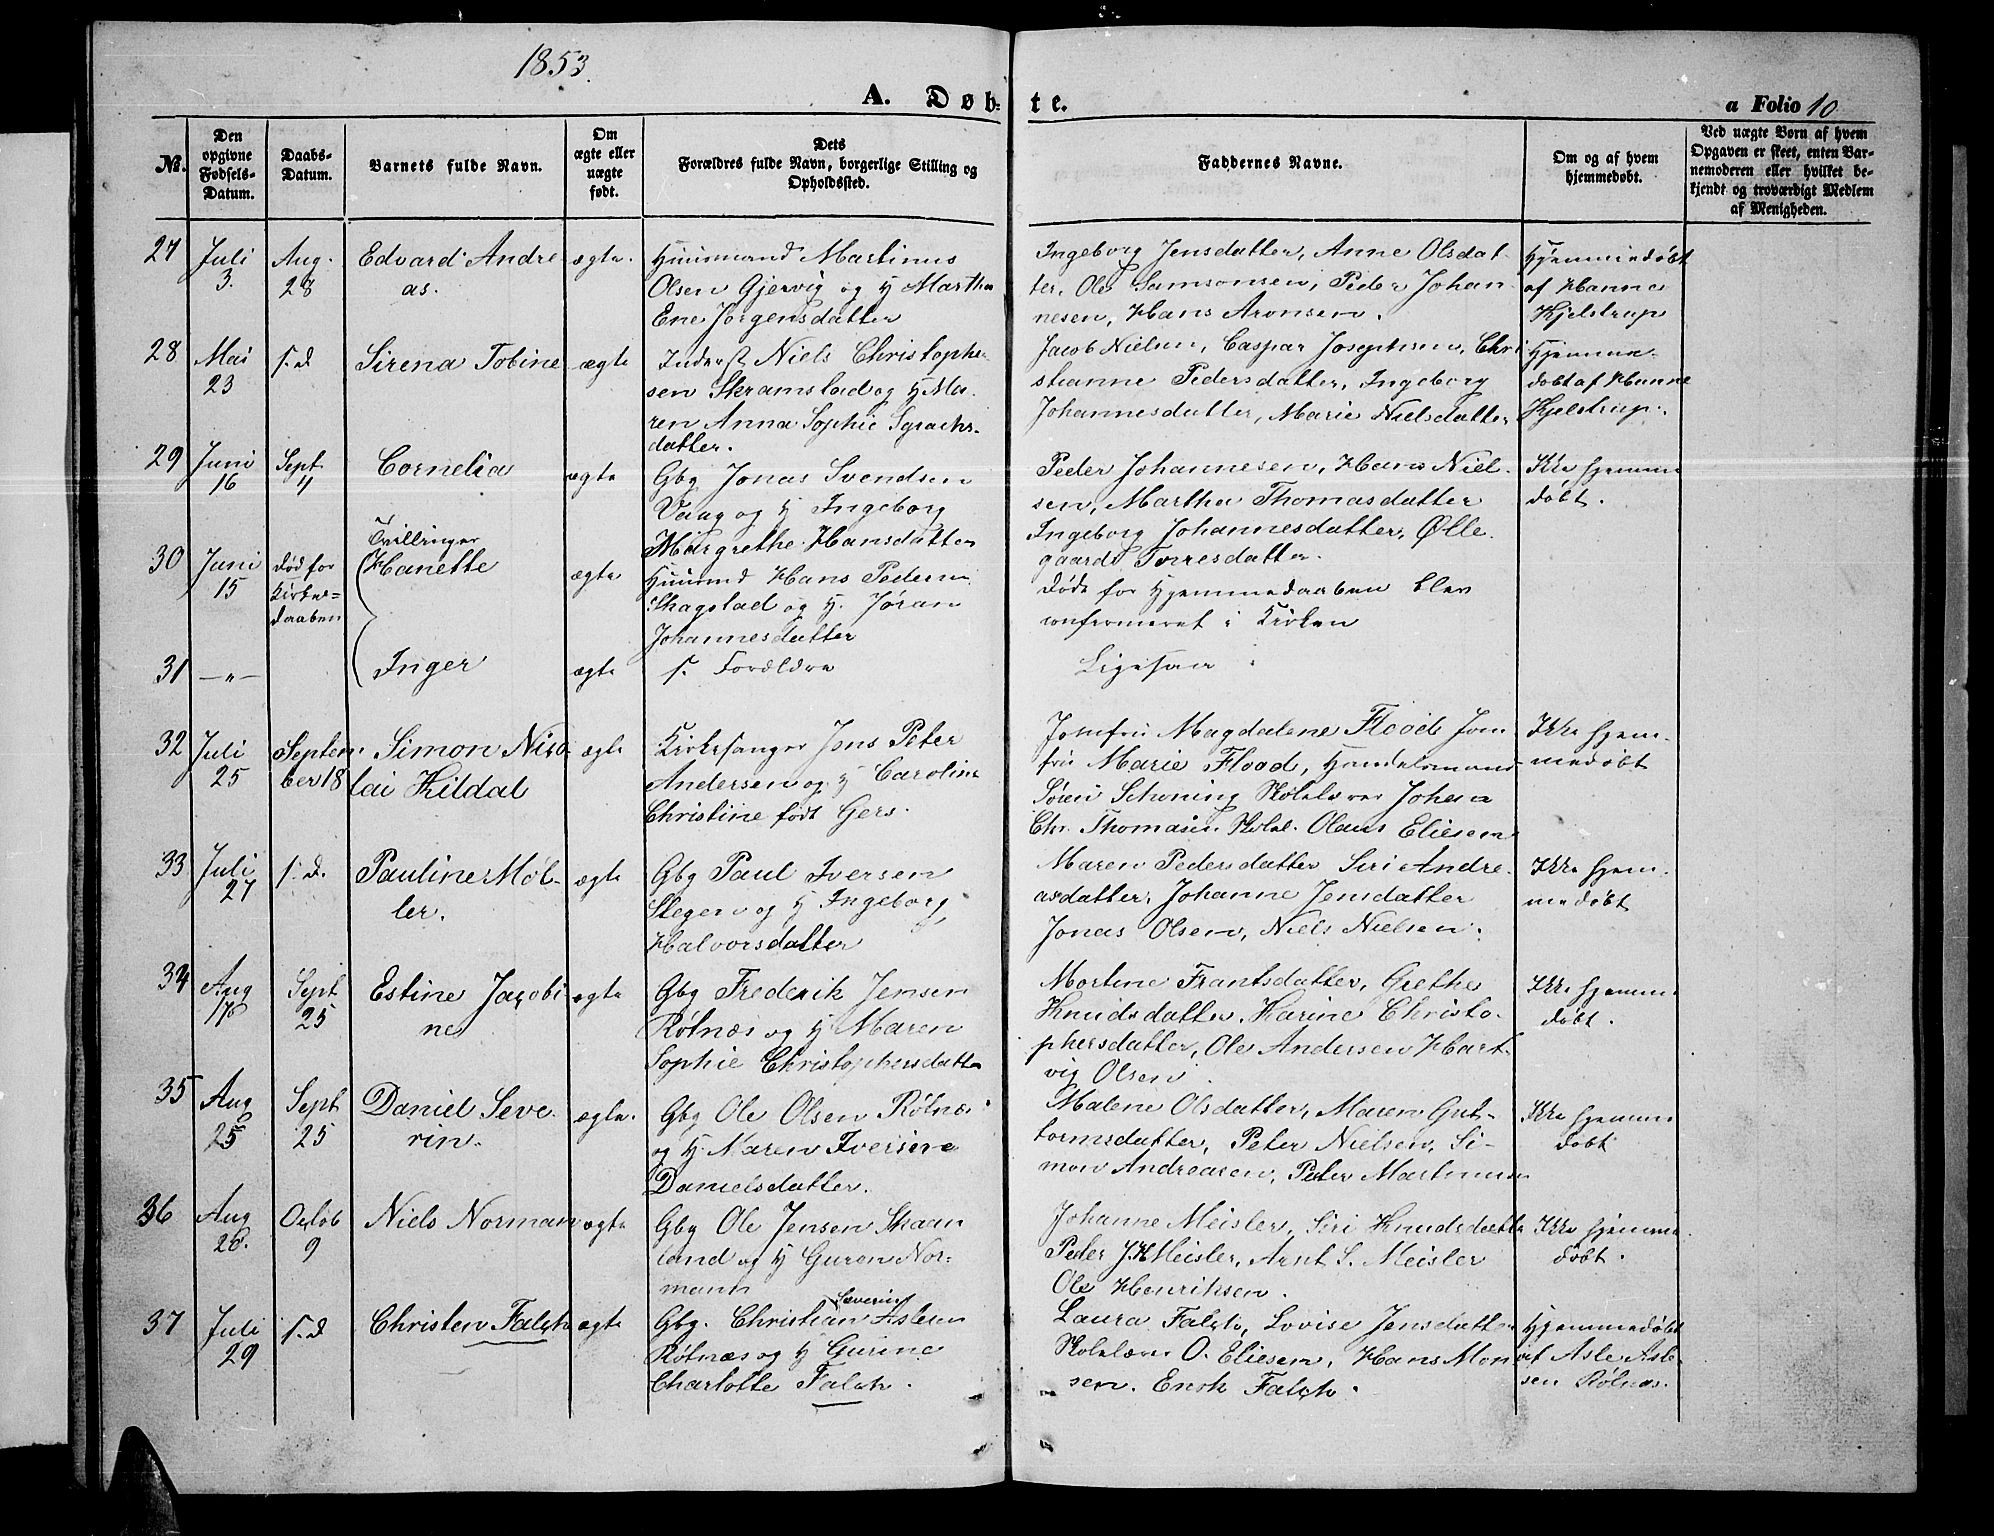 1853.
A. Døb-
te.
a Folio 10
№.
Den opgivne Fødsels-Datum.
Daabs-Datum.
Barnets fulde Navn.
Om ægte eller uægte født.
Dets Forældres fulde Navn, borgerlige Stilling og Opholdssted.
Faddernes Navne.
Om og af hvem hjemmedøbt.
Ved uægte Børn af hvem Opgaven er skeet, enten Barnemoderen eller hvilket bekjendt og troværdigt Medlem af Menigheden.
27 Juli 3. Aug. 28 Edvard Andre
as.
ægte.
Huusmand Martinus
Olsen Gjervig og H Martha
Ene Jørgensdatter
Ingeborg Jensdatter, Anne Olsdat-
ter, Ole Samsonsen, Peder Johan-
nesen, Hans Aronsen.
Hjemmedøbt
af Hanna
Kjelstrup
28 Mai 23 s.d Sirena Tobine ægte
Inderst Niels Christophe-
sen Skramstad og H Ma-
ren Anna Sophie
datter.
Jacob Nielsen, Caspar Josephsen, Chri
stianne Pedersdatter, Ingeborg
Johannesdatter, Marie Nielsdatter
Hjemme-
døbt af Hanne
Kjelstrup.
29 Juni 16 Sept 4 Cornelia ægte
Gbg Jonas Svendsen
Vaag og H Ingeborg
Margrethe Hansdatter
Peder Johannesen, Hans Niel-
sen, Martha Thomasdatter
Ingeborg Johannesdatter, Ølle
gaard Torresdatter.
Ikke hjemme
døbt.
Tvillinger
30 Juni 15 død for
Kirke-
daaben
Hanette ægte
Huusmd Hans Pedersen
Skagstad og H. Jøran
Johannesdatter
døde før Hjemmedaaben blev
confirmeret i Kirken
31 —"— Inger ægte
s. Forældre
Ligesaa
32 Juli 25 Septem
ber 18
Simon Nico
lai Kildal
ægte
Kirkesanger Jens Peter
Andersen og H Caroline
Christine født Gers.
Jomfru Magdalene Flood Jom
fru Marie Flood, Handelsmand
Søren Schøning Skolelærer Johan
Chr. Thomasen Skolel. Olaus Eliesen
Ikke hjem-
medøbt
33 Juli 27 s.d. Pauline Møl-
ler.
ægte
Gbg Paul Iversen
Stegen og H Ingeborg
Halvorsdatter
Maren Pedersdatter Siri Andre-
asdatter, Johanne Jensdatter
Jonas Olsen, Niels Nielsen.
Ikke hjem-
medøbt
34 Aug Sept 25 Estine Jacobi
ne
ægte
Gbg Frederik Jensen
Røtnæs og H Maren
Sophie Christophersdatter
Mortine Frantsdatter, Grethe
Knudsdatter, Karine Christo-
phersdatter, Ole Andersen Hart-
vig Olsen
Ikke hjemme
døbt.
35 Aug 25 Sept 25 Daniel Seve-
rin.
ægte.
Gbg Ole Olsen Røtnæs
og H. Maren Iversine
Danielsdatter.
Malene Olsdatter, Maren Gut-
tormsdatter, Peter Nielsen, Si-
mon Andreasen, Peter Martinusen
Ikke hjemme
døbt
36 Aug 20. Octob 9 Niels Norman ægte
Gbg Ole Jensen Skaan
land og H Guren Nor-
mann
Johanne Meisler, Siri Knudsdatter
Peder J.H Meisler, Arnt S. Meisler
Ole Henriksen.
Ikke hjemme
døbt.
37 Juli 29 s.d Christen Falch ægte
Severin
Gbg. Christian Aslesen
Røtnæs og H Gurine
Charlotte Falch.
Laura Falch, Lovise Jensdatter
Skolelærer O. Eliesen, Hans Mon
sen. Enok Falch.
Hjemmedøbt
af Asle Asle-
sen Røtnæs.